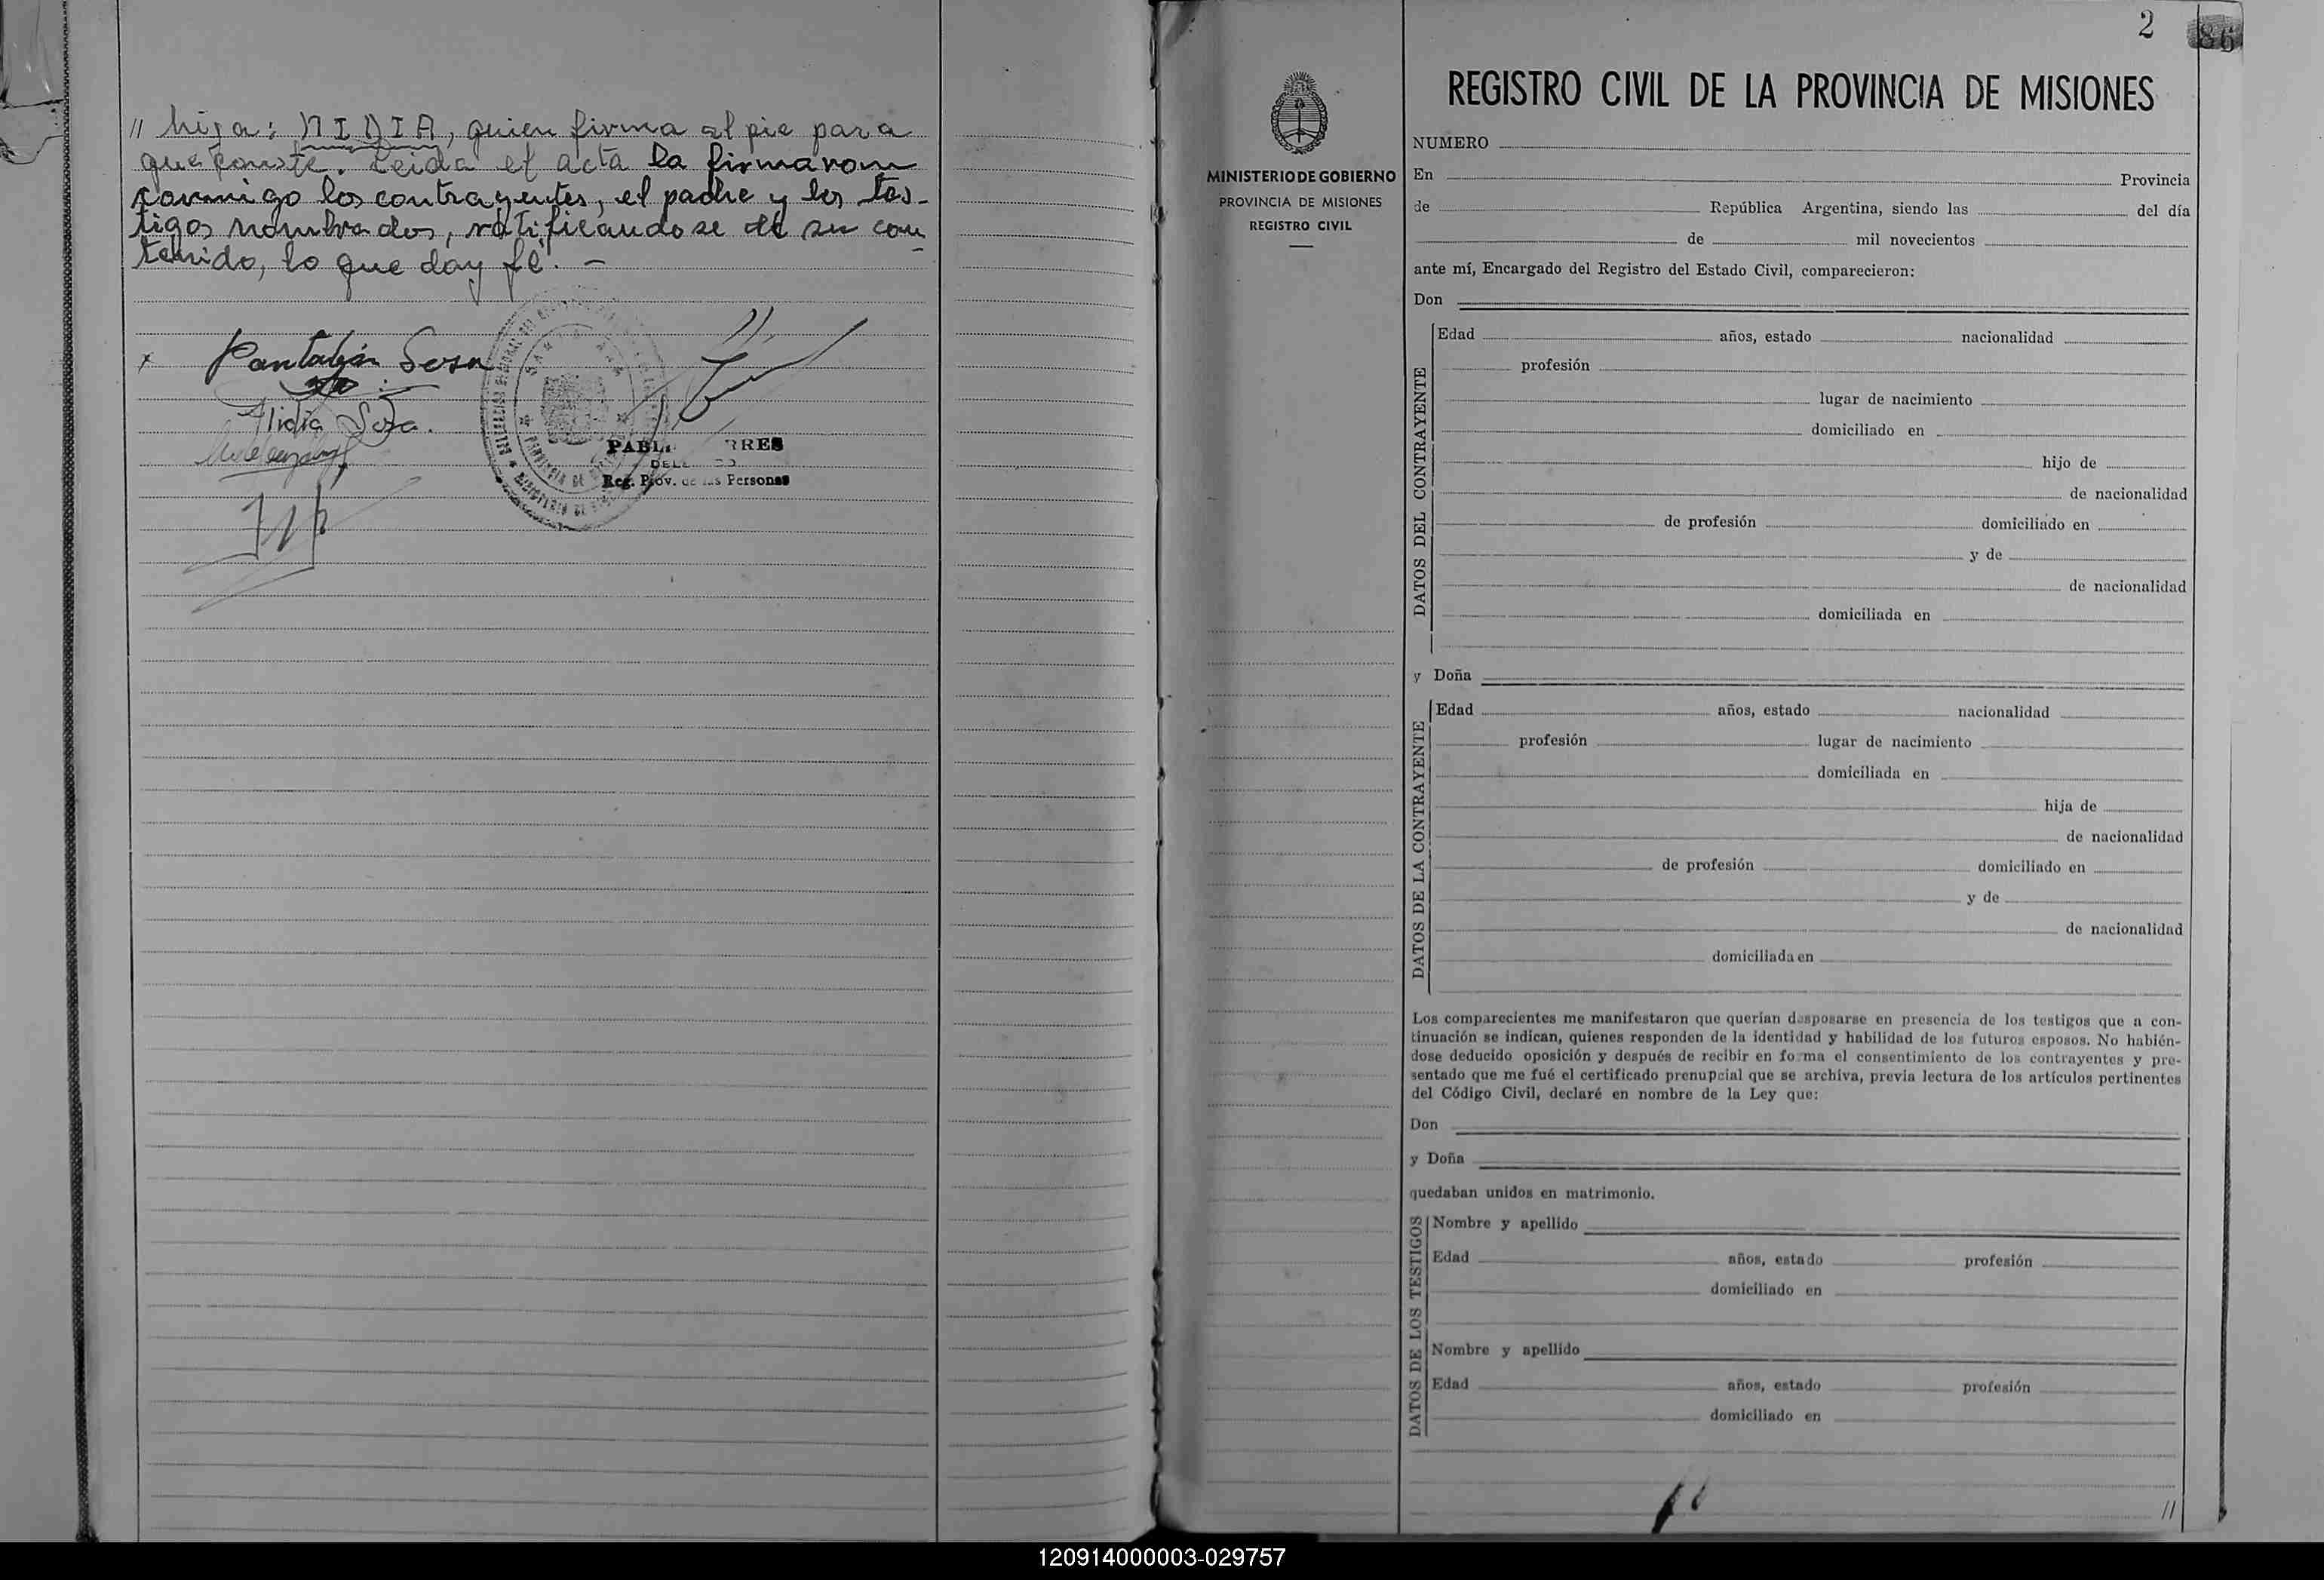 // hija: NIDIA, quien firma al pie para
que conste. Leida el acta la firmaron
conmigo los contrayentes, el padre y los tes-
tigos nombrados, ratificandose de su con
tenido, lo que doy fé. -
x Pantaleón Sosa
Nidia Sosa.
PABL RRES
DELE DO
Reg. Prov. de las Personas
2
86
MINISTERIO DE GOBIERNO
PROVINCIA DE MISIONES
REGISTRO CIVIL
REGISTRO CIVIL DE LA PROVINCIA DE MISIONES
NUMERO
En Provincia
de República Argentina, siendo las del día
de mil novecientos
ante mí, Encargado del Registro del Estado Civil, comparecieron:
Don
DATOS DEL CONTRAYENTE
Edad años, estado nacionalidad
profesión
lugar de nacimiento
domiciliado en
hijo de
de nacionalidad
de profesión domiciliado en
y de
de nacionalidad
domiciliada en
y Doña
DATOS DE LA CONTRAYENTE
Edad años, estado nacionalidad
profesión lugar de nacimiento
domiciliada en
hija de
de nacionalidad
de profesión domiciliado en
y de
de nacionalidad
domiciliada en
Los comparecientes me manifestaron que querían desposarse en presencia de los testigos que a con-
tinuación se indican, quienes responden de la identidad y habilidad de los futuros esposos. No habién-
dose deducido oposición y después de recibir en forma el consentimiento de los contrayentes y pre-
sentado que me fué el certificado prenupcial que se archiva, previa lectura de los artículos pertinentes
del Código Civil, declaré en nombre de la Ley que:
Don
y Doña
quedaban unidos en matrimonio.
DATOS DE LOS TESTIGOS
Nombre y apellido
Edad años, estado profesión
domiciliado en
Nombre y apellido
Edad años, estado profesión
domiciliado en
//
120914000003-029757